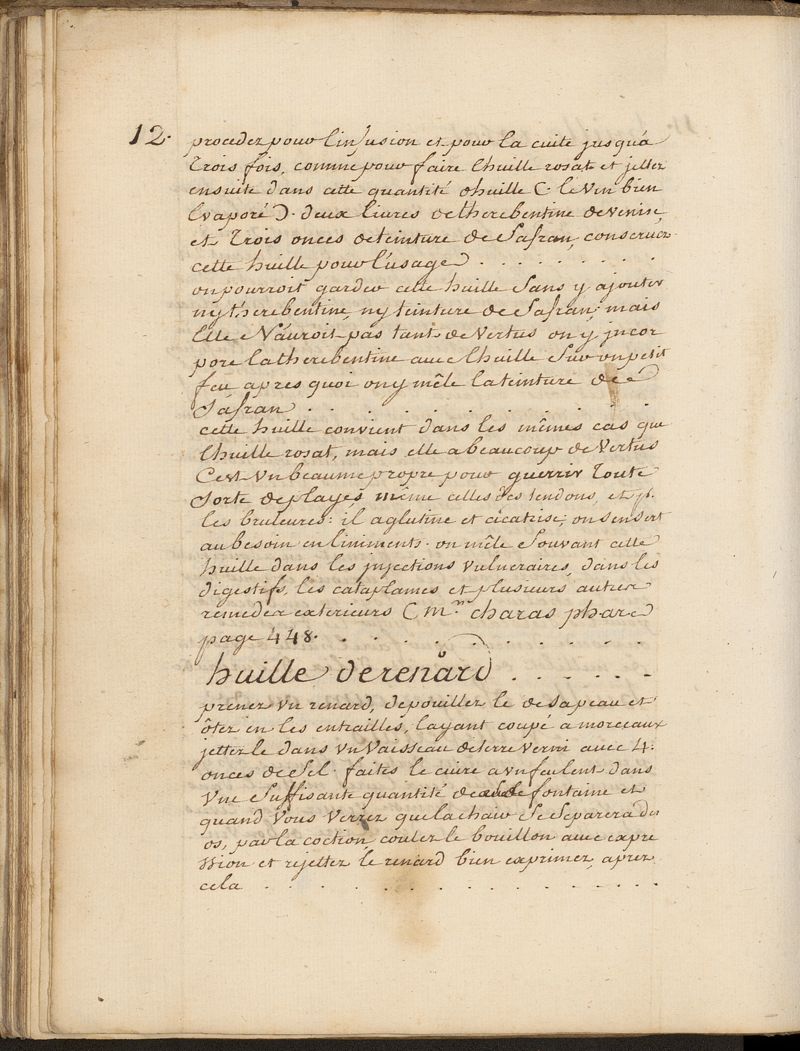 12.
procedez pour linfusion et pour la cuite jusqu'à
trois fois, comme pour faire lhuille rosat et jetter
ensuite dans cette quantité dhuille ( le vin bien
Evaporé ). deux livres de therebentine de venise,
et trois onces de teinture de Safran, conservez
cette huille pour l'usage . . . . . . . .
on pourroit garder cette huille sans y ajouter
ny therebentine, ny teinture de Safran; mais
Elle N'auroit pas tant de Vertus on y jncor
pore la therebentine avec lhuille Sur un petit
feu apres quoi on y mêle la teinture de
Safran . . . . . . . . . .
cette huille convient dans les mêmes cas que
lhuille rosat, mais elle a beaucoup de Vertus
C'est un beaume propre pour guerrir toute
Sorte de playes même celles des tendons, et pr.
les bruleures: il aglutine et cicatrise; on sen sert
au besoin en liniments. on mêle Souvant cette
huille dans les jnjections Vulneraires, dans les
digestifs, les cataplames et plusieurs autres
remedes exterieurs ( Mr. charas phar
page 448. . . . . . . . . .
huille de renard . . . . . .
prener un renard, depouiller le de sa peau et
ôter en les entrailles, layant coupé a morceaux
jetter le dans un Vaisseau de terre verni avec 4.
onces de Sel. faites le cuire a un feu lent dans
Vne Suffisante quantité de fontaine et
quand Vous Verrez que la chair Se Separera des
os, par la coction, couler le bouillon avec expre
ssion et rejetter le renard bien exprimer, aprez
cela . . . . . . . . . . . .